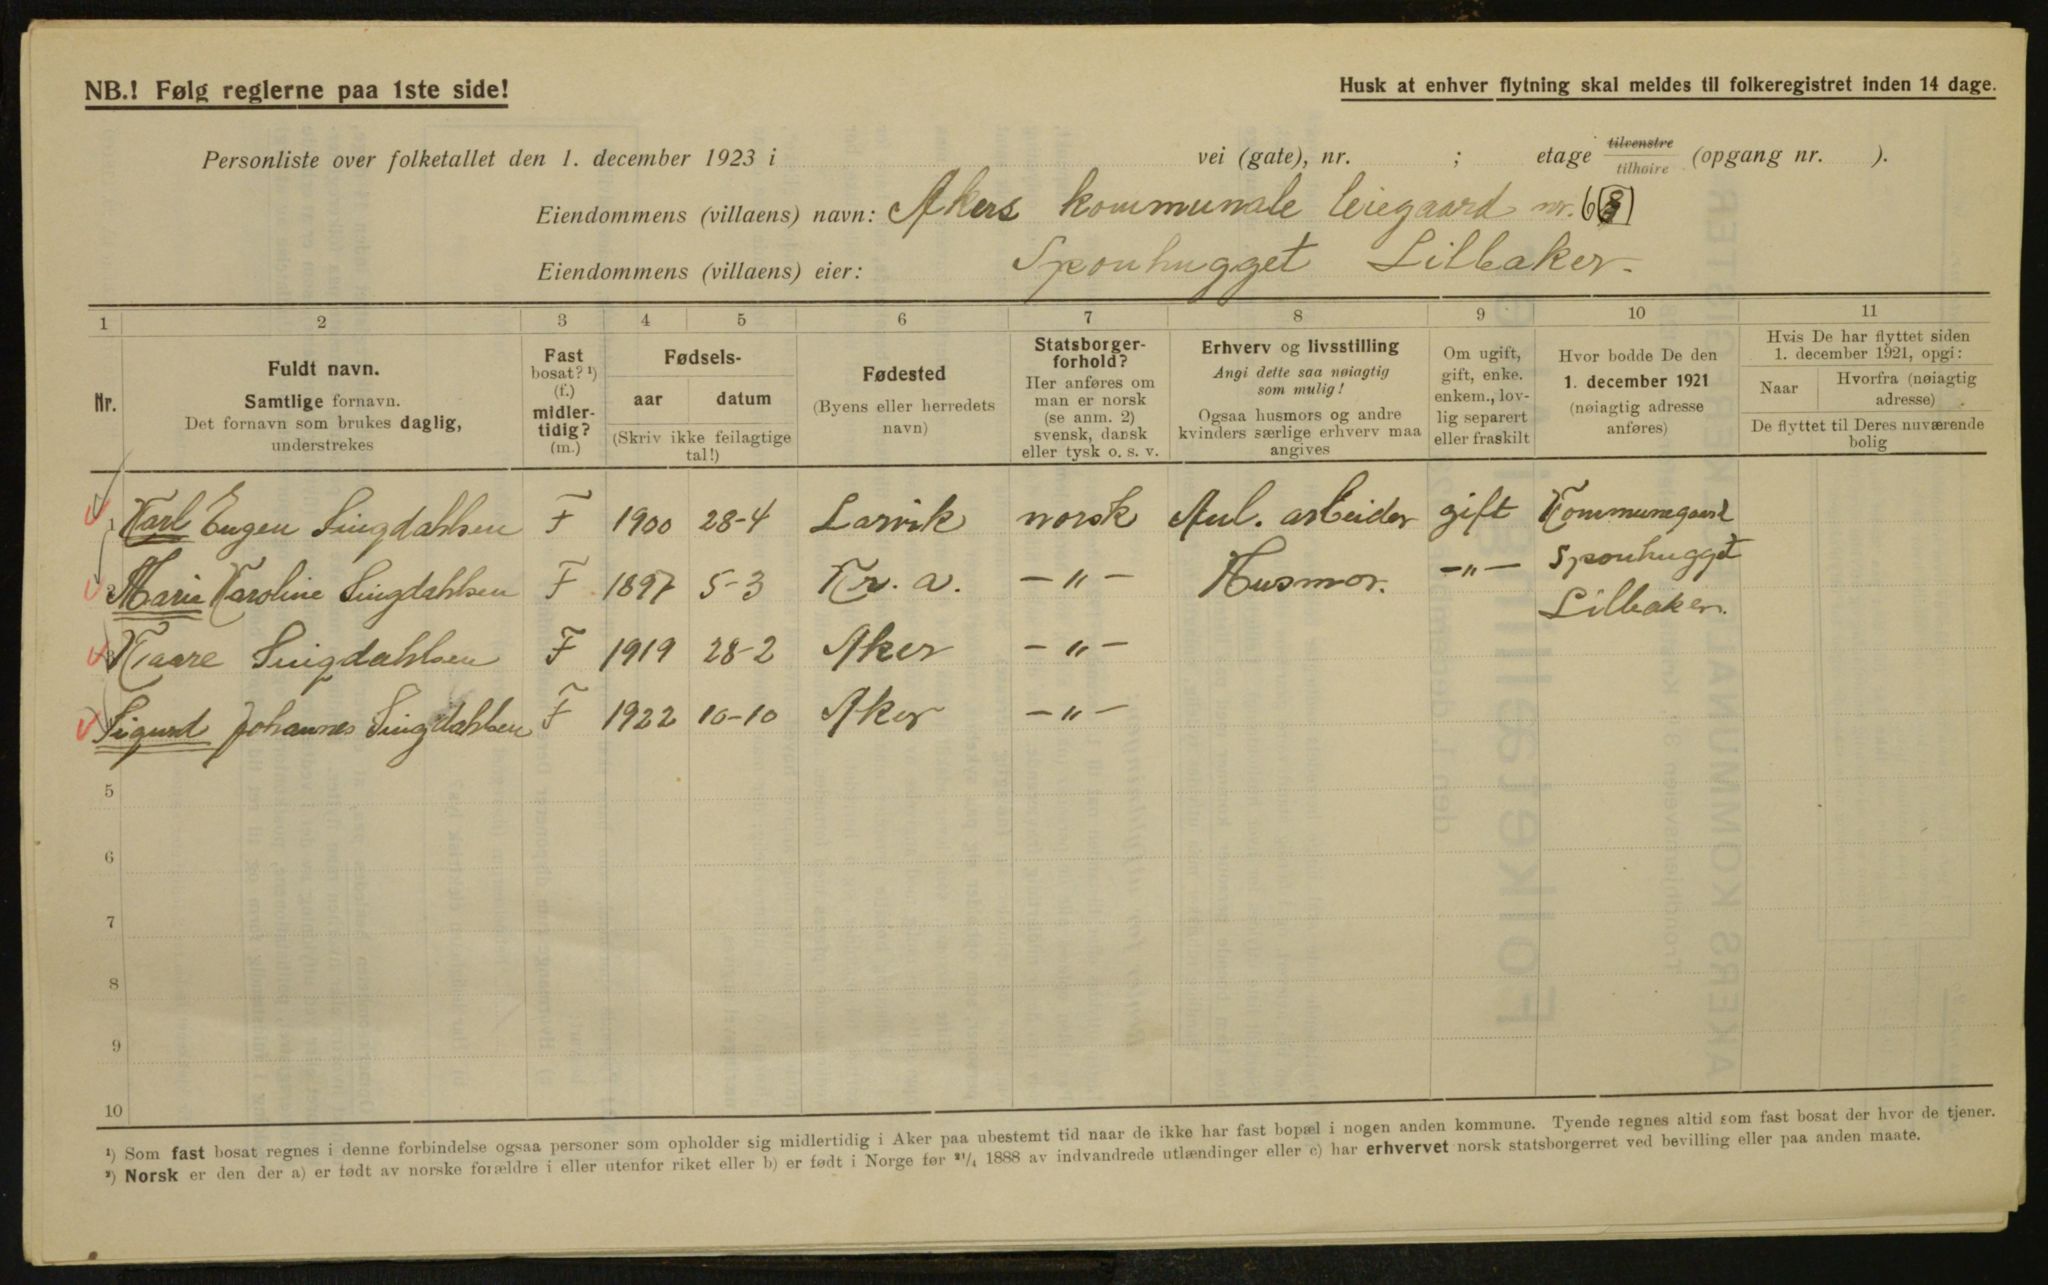 NB.! Følg reglerne paa 1ste side!
Husk at enhver flytning skal meldes til folkeregistret inden 14 dage.
Personliste over folketallet den 1. december 1923 i vei (gate), nr. ; etage tilvenstre tilhøire (opgang nr. ).
Eiendommens (villaens) navn: Akers kommunale leiegaard nr. 6
Eiendommens (villaens) eier: Sponhugget Lilleaker.
1 2 3 4 5 6 7 8 9 10 11
Nr.
Fuldt navn.
Samtlige fornavn.
Det fornavn som brukes daglig,
understrekes
Fast
bosat? ¹)
(f.)
midler-
tidig?
(m.)
Fødsels-
aar datum
(Skriv ikke feilagtige
tal!)
Fødested
(Byens eller herredets
navn)
Statsborger-
forhold?
Her anføres om
man er norsk
(se anm. 2)
svensk, dansk
eller tysk o. s. v.
Erhverv og livsstilling
Angi dette saa nøiagtig
som mulig!
Ogsaa husmors og andre
kvinders særlige erhverv maa
angives
Om ugift,
gift, enke.
enkem., lov-
lig separert
eller fraskilt
Hvor bodde De den
1. december 1921
(nøiagtig adresse
anføres)
Hvis De har flyttet siden
1. december 1921, opgi:
Naar Hvorfra (nøiagtig
adresse)
De flyttet til Deres nuværende
bolig
1 Karl Eugen Singdahlsen F 1900 28-4 Larvik norsk Anl. arbeider gift Kommunegaard
Sponhugget
2 Marie Karoline Singdahlsen F 1897 5-3 Kr. a. —〃— Husmor. —〃—
Lilleaker.
3 Kaare Singdahlsen F 1919 28-2 Aker —〃—
Sigurd Johannes Singdahlsen F 1922 10-10 Aker —〃—
5
6
7
8
9
10
¹) Som fast bosat regnes i denne forbindelse ogsaa personer som opholder sig midlertidig i Aker paa ubestemt tid naar de ikke har fast bopæl i nogen anden kommune. Tyende regnes altid som fast bosat der hvor de tjener.
²) Norsk er den der a) er født av norske forældre i eller utenfor riket eller b) er født i Norge før ²¹/₄ 1888 av indvandrede utlændinger eller c) har erhvervet norsk statsborgerret ved bevilling eller paa anden maate.